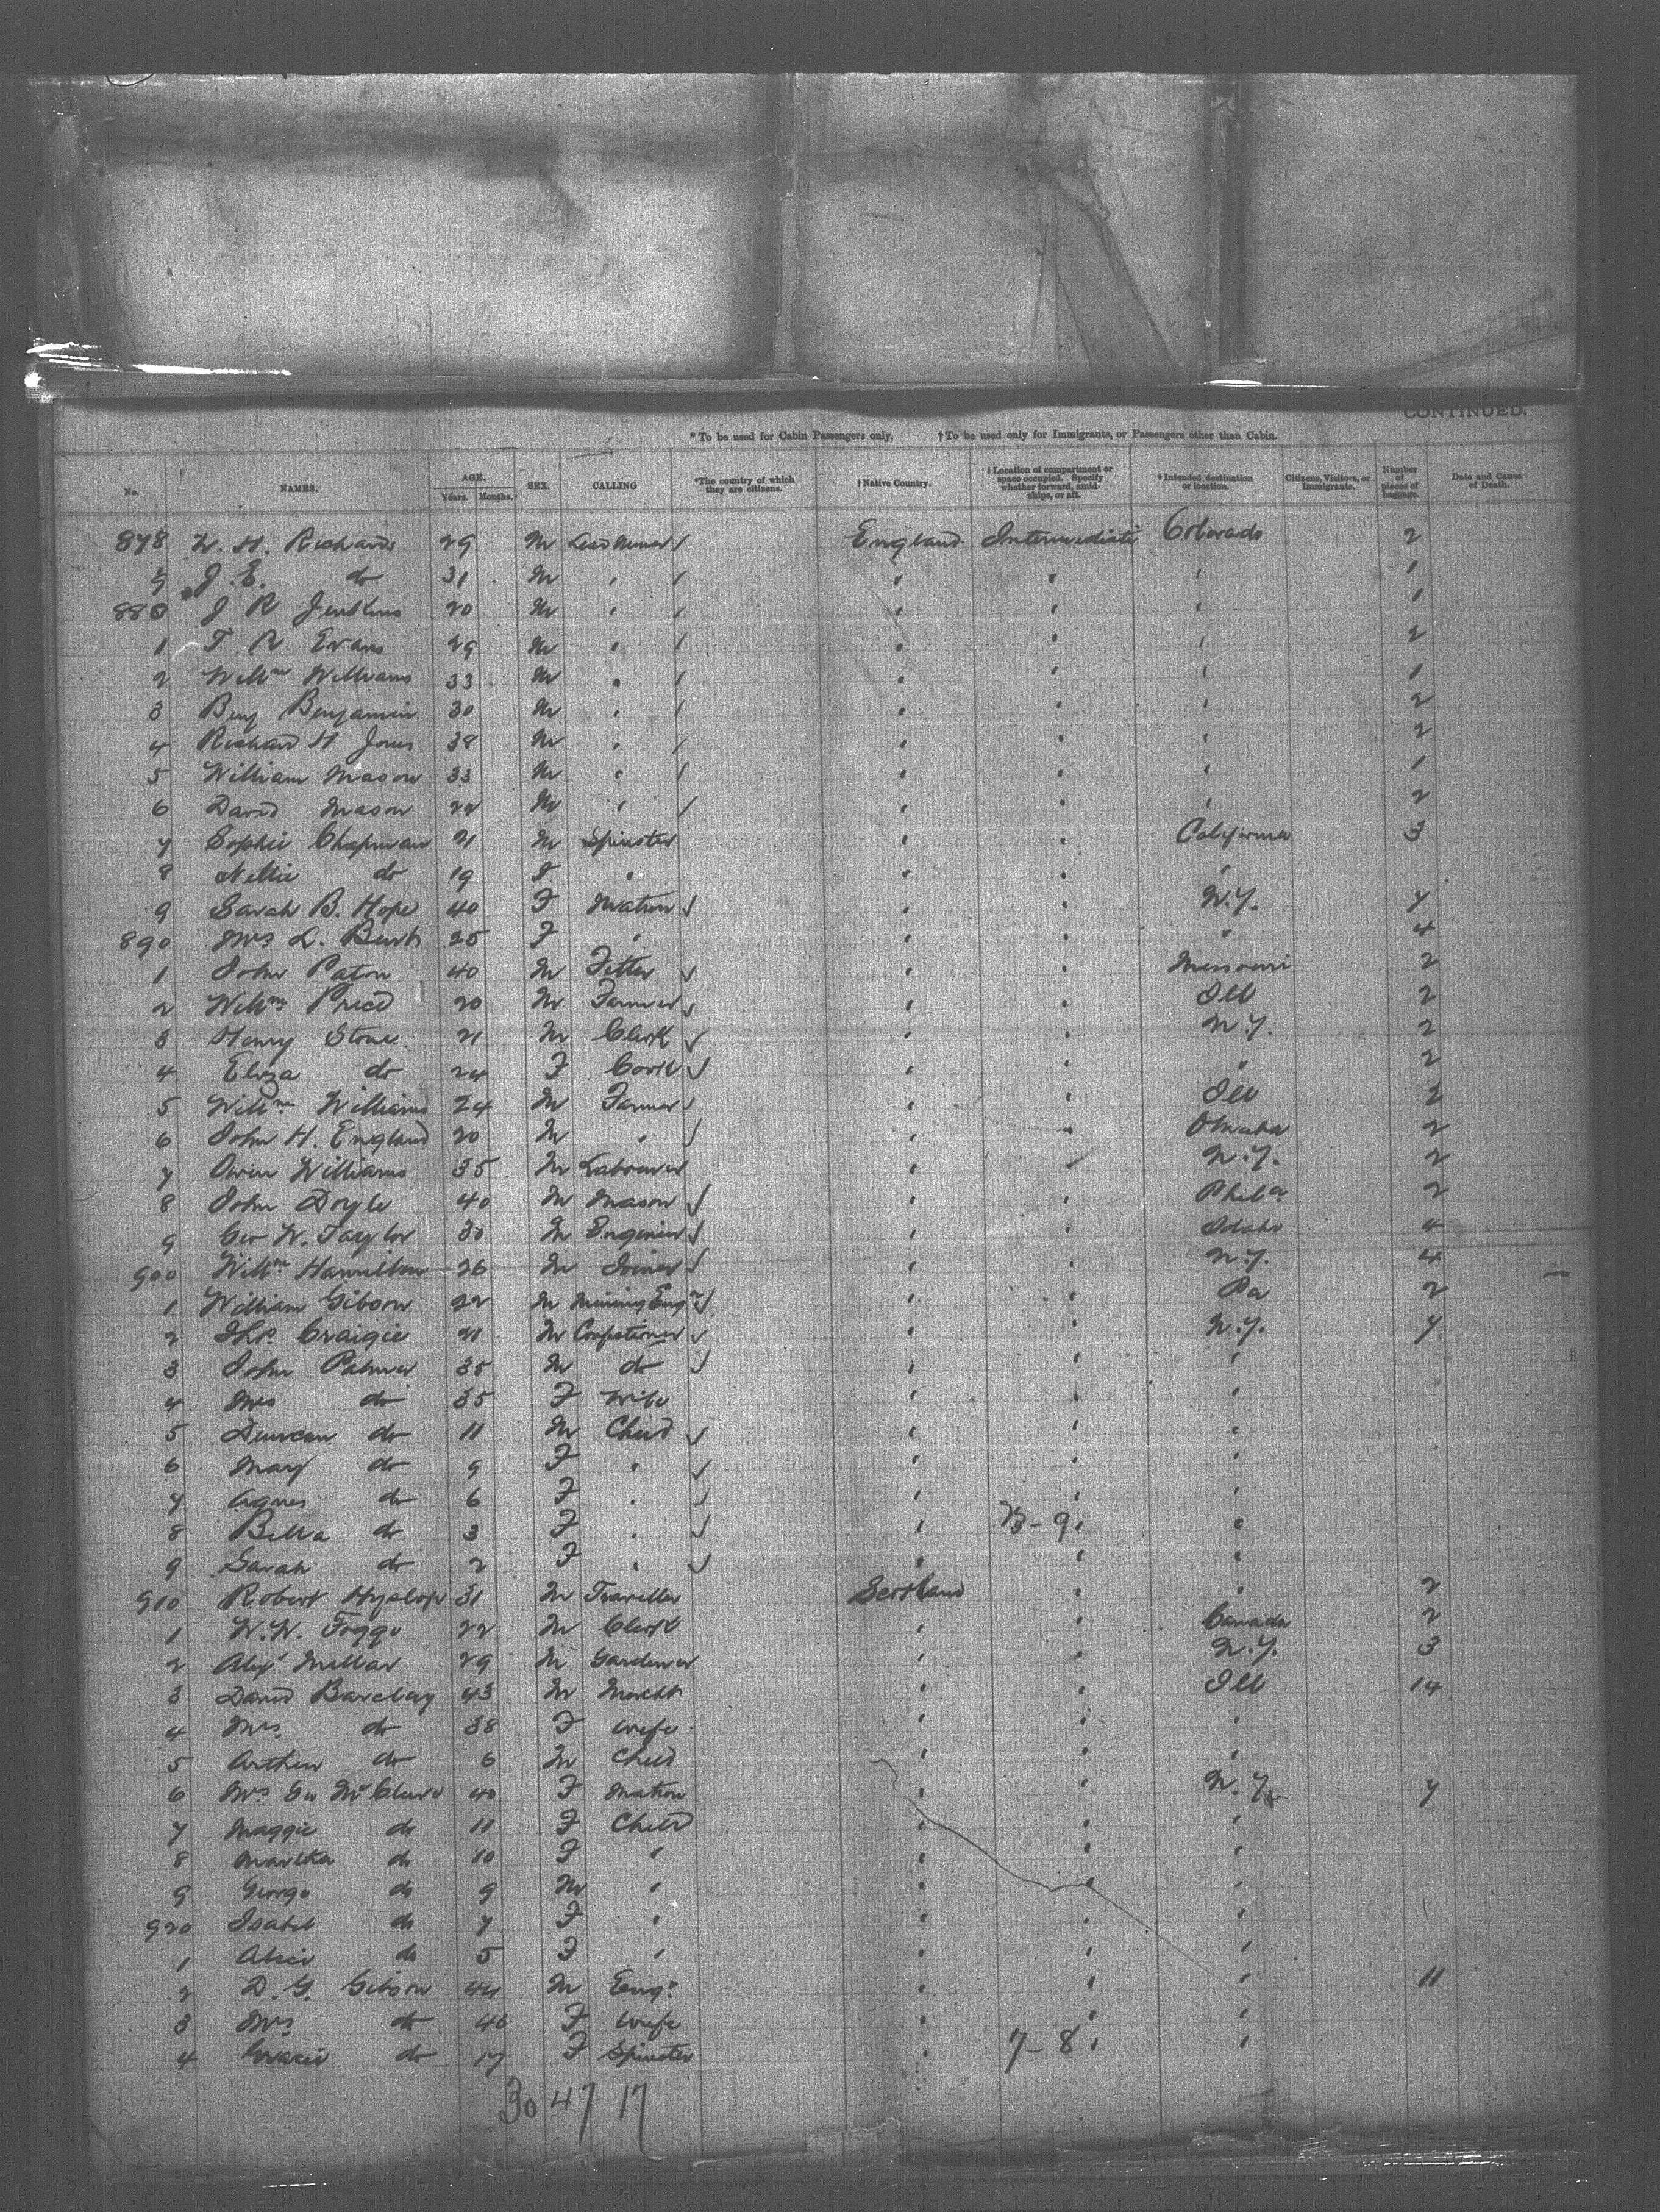 CONTINUED.
* To be used for Cabin Passengers only. † To be used only for Immigrants, or Passengers other than Cabin.
No. NAMES. AGE. Years. Months. SEX. CALLING *The country of which they are citizens. † Native Country. † Location of compartment or space occupied. Specify whether forward, amid-ships, or aft. † Intended destination or location. Citizens, Visitors, or Immigrants. Number of pieces of baggage. Date and Cause of Death.
878 W. H. Richards 29 M Lead Miner / England Intermediate Colorado 2
9 J. E. do 31 M " / " " " 1
880 J R Jenkins 20 M " / " " " 1
1 T R Evans 29 M " / " " " 2
2 Willm Williams 33 M " / " " " 1
3 Benj Benjamin 30 M " / " " " 2
4 Richard H Jones 38 M " / " " " 2
5 William Mason 33 M " / " " " 1
6 David Mason 22 M " / " " " 2
7 Sophie Chapman 21 M Spinster " " California 3
8 Nellie do 19 F " " " "
9 Sarah B. Hope 40 F Matron " " N.Y. 7
890 Mrs L. 25 F " " " " 4
1 John Paton 40 M Fitter " " Missouri 2
2 Willm Price 20 M Farmer " " Ill 2
3 Henry Stone 21 M Clerk " " N.Y. 2
4 Eliza do 24 F Cook " " " 2
5 Willm Williams 24 M Farmer " " Ill 2
6 John H. England 20 M " " " Omaha 2
7 Owen Williams 35 M Labourer " " N.Y. 2
8 John Doyle 40 M Mason " " Phila 2
9 Geo W. Taylor 30 M Engineer " " Idaho 4
900 Willm Hamilton 26 M Joiner " " N.Y. 4
1 William Gibson 22 M Mining Engr " " Pa 2
2 Thos. Craigie 21 M Confectioner " " N.Y. 7
3 John Palmer 35 M do " " "
4 Mrs do 35 F Wife " " "
5 Duncan do 11 M Child " " "
6 Mary do 9 F " " " "
7 Agnes do 6 F " " " "
8 Bella do 3 F " " 73-9 " "
9 Sarah do 2 F " " " "
910 Robert Hyslop 31 M Traveller Scotland " " 2
1 W. W. Foggo 22 M Clerk " " Canada 2
2 Alexr Millar 29 M Gardener " " N.Y. 3
3 David Barclay 43 M Mercht " " Ill 14
4 Mrs. do 38 F Wife " " "
5 Arthur do 6 M Child " " "
6 Mrs Geo McClure 40 F Matron " " N.Y. 7
7 Maggie do 11 F Child " " "
8 Martha do 10 F " " " "
9 George do 9 M " " " "
920 Isabel do 7 F " " " "
1 Alice do 5 F " " " "
2 D. G. Gibson 44 M Engr " " " 11
3 Mrs do 46 F Wife " " "
4 Gracie do 17 F Spinster " 7-8 " "
30 47 17